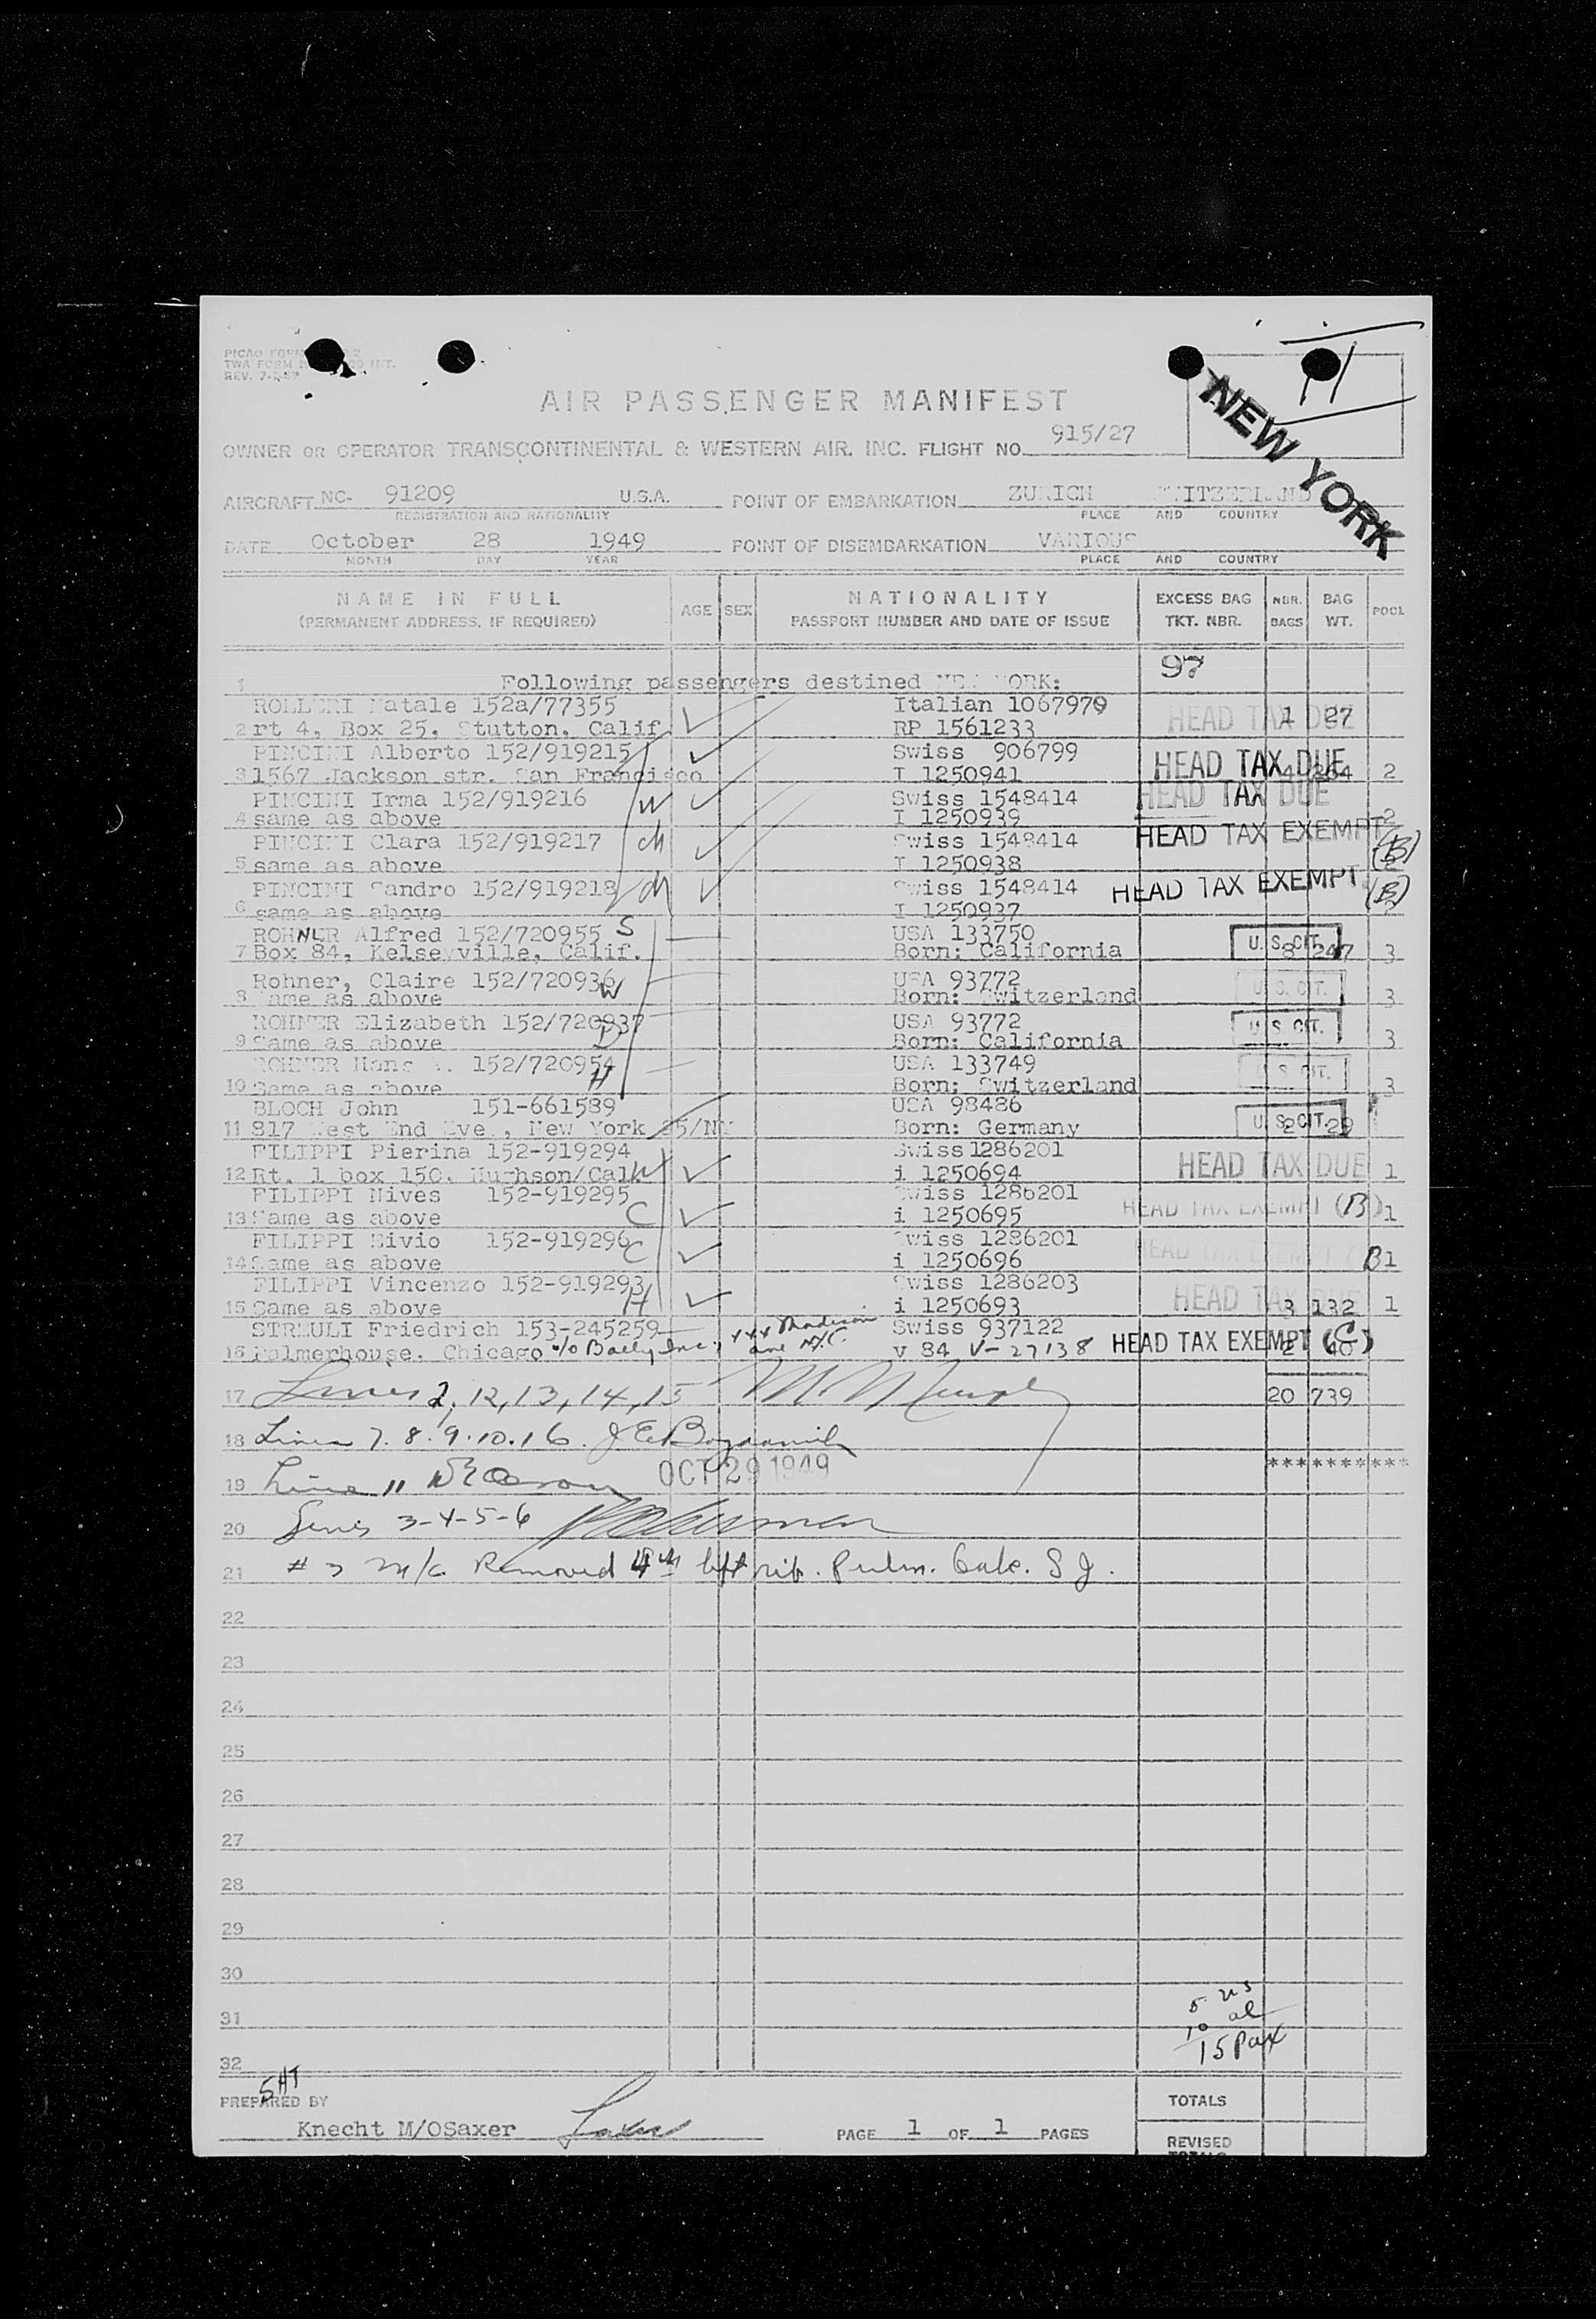 PICAO FORM
TWA FORM
REV.
11
AIR PASSENGER MANIFEST
NEW YORK
OWNER OR OPERATOR TRANSCONTINENTAL & WESTERN AIR. INC. FLIGHT NO. 915/27
AIRCRAFT NC- 91209 U.S.A. POINT OF EMBARKATION ZURICH SWITZERLAND
REGISTRATION AND NATIONALITY PLACE AND COUNTRY
DATE October 28 1949 POINT OF DISEMBARKATION VARIOUS
MONTH DAY YEAR PLACE AND COUNTRY
NAME IN FULL AGE SEX NATIONALITY EXCESS BAG NBR. BAG POOL
(PERMANENT ADDRESS, IF REQUIRED) PASSPORT NUMBER AND DATE OF ISSUE TKT. NBR. BAGS WT.
97
1 Following passengers destined NEW YORK:
ROLLERI Natale 152a/77355 Italian 1067979
2 rt 4, Box 25, Stutton, Calif RP 1561233 HEAD TAX DUE 1 27
PINCINI Alberto 152/919215 Swiss 906799
3 1567 Jackson str. San Francisco I 1250941 HEAD TAX DUE 4 264 2
PINCINI Irma 152/919216 W Swiss 1548414 HEAD TAX DUE
4 same as above I 1250939 2
PINCINI Clara 152/919217 ch Swiss 1548414 HEAD TAX EXEMPT (B)
5 same as above I 1250938
PINCINI Sandro 152/919218 ch Swiss 1548414 HEAD TAX EXEMPT (B)
6 same as above I 1250937
ROHNER Alfred 152/720955 S USA 133750
7 Box 84, Kelseyville, Calif. Born: California U. S. CIT. 8 247 3
Rohner, Claire 152/720936 W USA 93772
8 Same as above Born: Switzerland U. S. CIT. 3
ROHNER Elizabeth 152/720937 D USA 93772
9 Same as above Born: California U. S. CIT. 3
ROHNER Hans 152/720954 H USA 133749
10 Same as above Born: Switzerland U. S. CIT. 3
BLOCH John 151-661589 USA 98486
11 817 West End Eve., New York 25/NY Born: Germany U. S. CIT. 2 29
FILIPPI Pierina 152-919294 Swiss 1286201
12 Rt. 1 box 150, Hughson/Cal W i 1250694 HEAD TAX DUE 1
FILIPPI Nives 152-919295 Swiss 1286201
13 Same as above C i 1250695 HEAD TAX EXEMPT (B) 1
FILIPPI Sivio 152-919296 Swiss 1286201
14 Same as above C i 1250696 HEAD TAX EXEMPT B 1
FILIPPI Vincenzo 152-919293 Swiss 1286203
15 Same as above H i 1250693 HEAD TAX DUE 3 132 1
STREULI Friedrich 153-245259 Swiss 937122
16 Palmerhouse, Chicago c/o Bally Inc., 444 Madison ave N.Y.C. V 84 V-27138 HEAD TAX EXEMPT (C) 2 40
17 Lines 2, 12, 13, 14, 15 20 739
18 Lines 7. 8. 9. 10. 16.
19 Line 11 OCT 29 1949 **********
20 Lines 3-4-5-6
21 # 3 M/c. Removed 4th left rib. Pulm. Calc. S J.
22
23
24
25
26
27
28
29
30
31
32
5 us
10 al
15 Pax
SHT
PREPARED BY TOTALS
Knecht M/OSaxer Saxer PAGE 1 OF 1 PAGES
REVISED
TOTALS